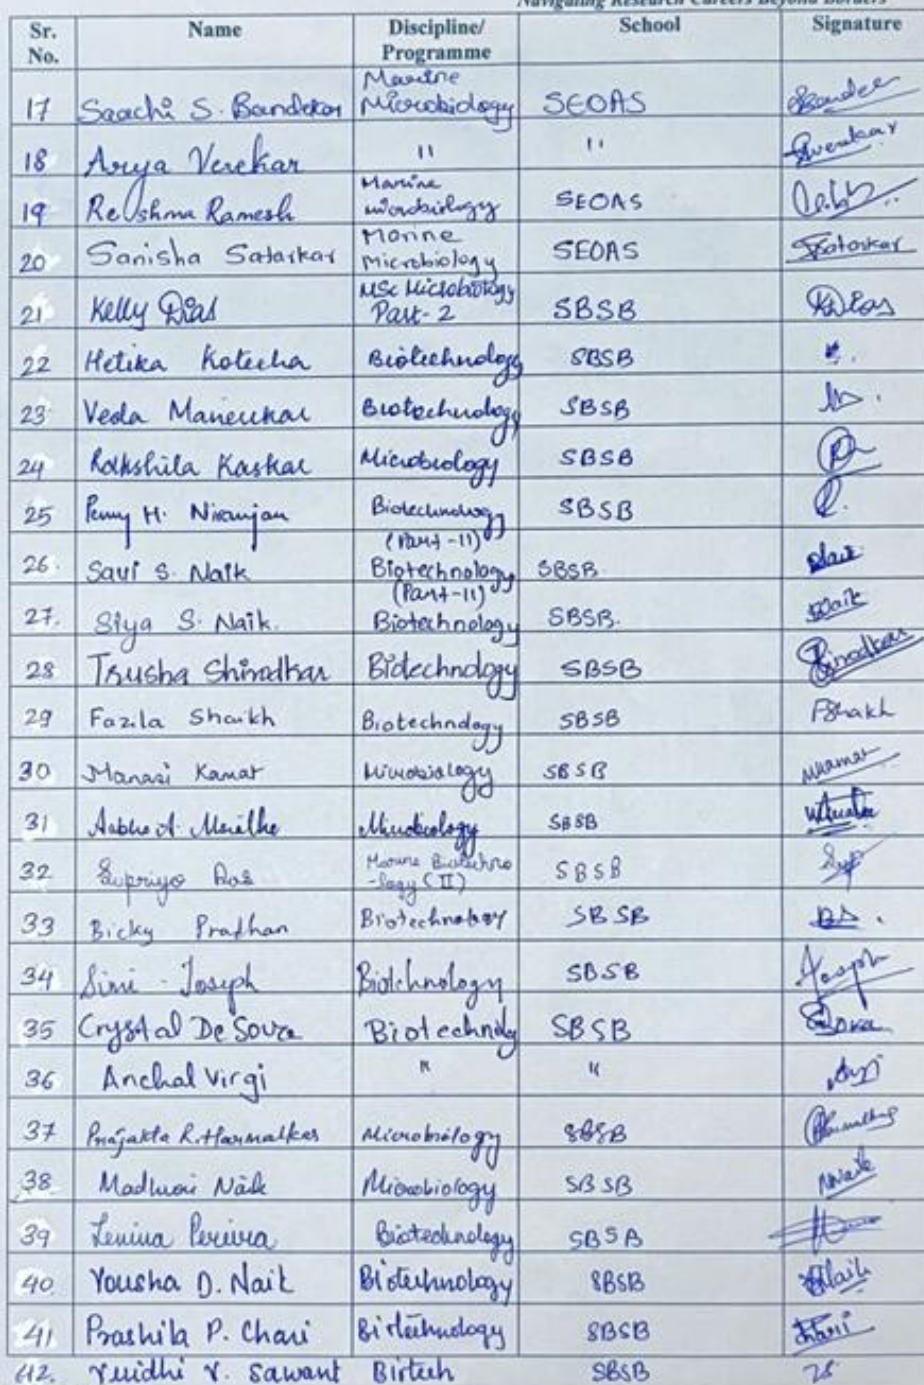 Navigating Research Careers Beyond Borders
Sr. No. Name Discipline/ Programme School Signature
17 Saachi S. Bandekar Marine Microbiology SEOAS
18 Arya Verekar " "
19 Reshma Ramesh Marine microbiology SEOAS
20 Sanisha Satarkar Marine Microbiology SEOAS Satarkar
21 Kelly Dias MSc Microbiology Part-2 SBSB KDias
22 Hetika Kotecha Biotechnology SBSB
23 Veda Manerkar Biotechnology SBSB
24 Kaskar Microbiology SBSB
25 Penny H. Niranjan Biotechnology (Part-II) SBSB
26. Savi S. Naik Biotechnology (Part-II) SBSB. Naik
27. Siya S. Naik. Biotechnology SBSB. Naik
28 Trusha Shirodkar Biotechnology SBSB Shirodkar
29 Fazila Shaikh Biotechnology SBSB
30 Manasi Kamat Microbiology SBSB
31 Microbiology SBSB
32 Supriyo Das Marine Biotechno -logy (II) SBSB
33 Bicky Pradhan Biotechnology SBSB
34 Simi - Joseph Biotechnology SBSB Joseph
35 Crystal De Souza SBSB
36 Anchal Virgi " "
37 Prajakta R. Harmalkar Microbiology SBSB
38 Naik Microbiology SBSB
39 Lenina Pereira Biotechnology
40 Yousha D. Naik Biotechnology SBSB Naik
41 Prashila P. Chari Biotechnology SBSB Chari
42. Sawant SBSB